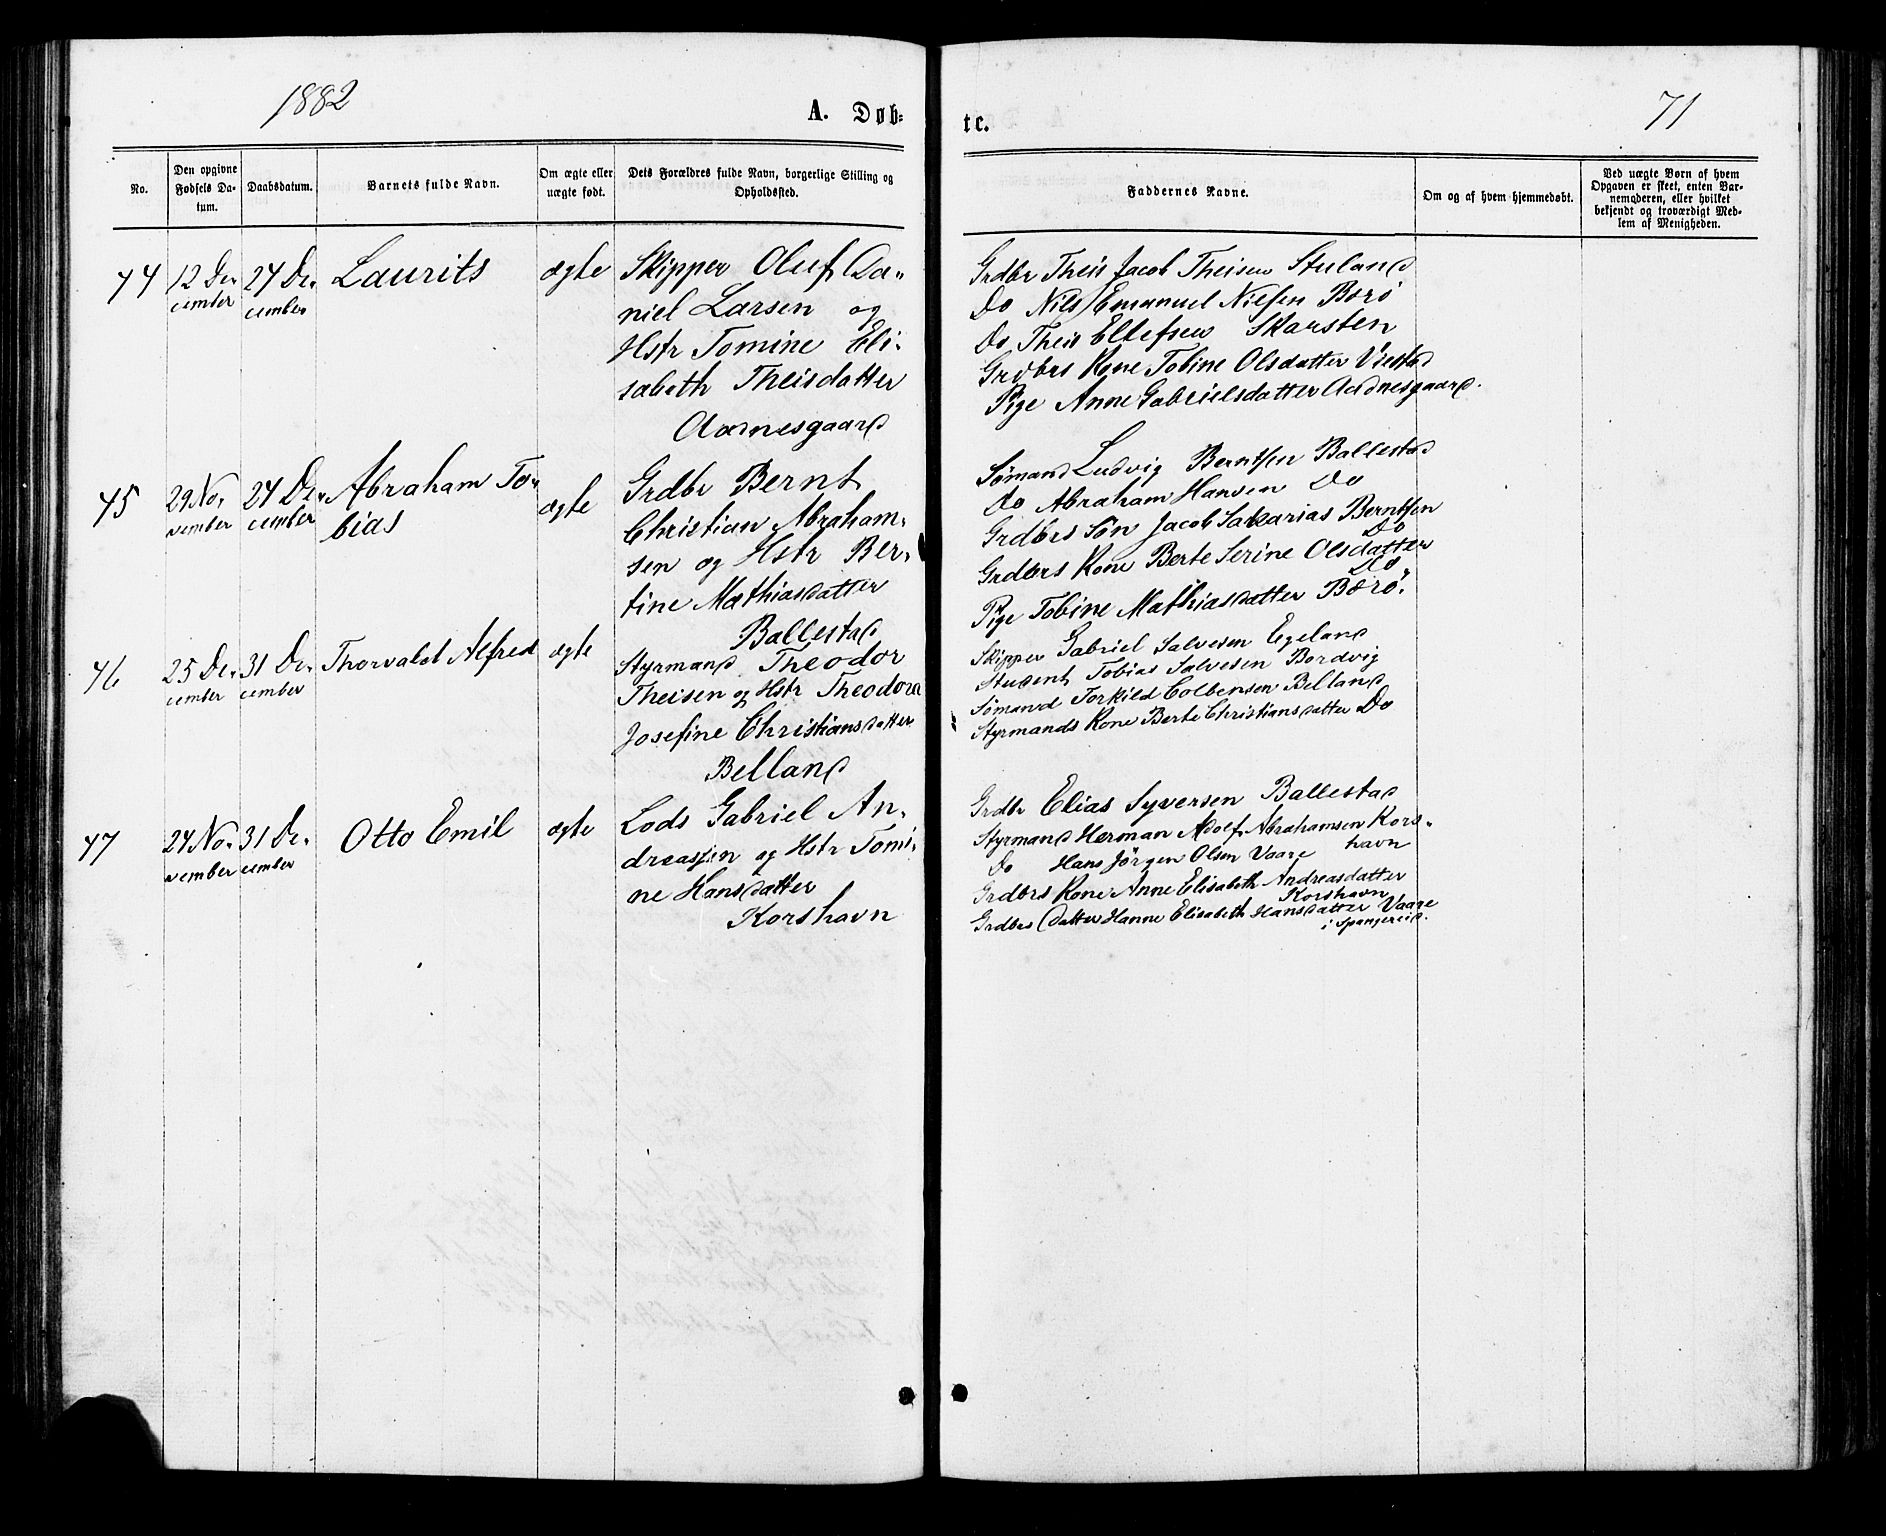 1882
A. Døb-
te.
71
No.
Den opgivne Fødsels Da-tum.
Daabsdatum.
Barnets fulde Navn.
Om ægte eller uægte født.
Dets Forældres fulde Navn, borgerlige Stilling og Opholdssted.
Faddernes Navne.
Om og af hvem hjemmedøbt.
Ved uægte Børn af hvem
Opgaven er skeet, enten Bar-
nemoderen, eller hvilket
bekjendt og troværdigt Med-
lem af Menigheden.
44
12 De-
cember
24 De-
cember
Laurits
ægte
Skipper Oluf Da-
niel Larsen og
Hstr Tomine Eli-
sabeth Theisdatter
Aadnesgaard
Grdbr Theis Jacob Theisen Stuland
Do Nils Emanuel Nielsen Borø
Do Theis Ellefsen Skarsten
Grdbrs Kone Tobine Olsdatter Viestad
Pige Anne Gabrielsdatter Aadnesgaard.
45
29 No-
vember
24 De-
cember
Abraham To-
bias
ægte
Grdbr Bernt
Christian Abraham-
sen og Hstr Ber-
tine Mathiasdatter
Ballestad
Sømand Ludvig Berntsen Ballestad
Do Abraham Hansen Do
Grdbrs Søn Jacob Sakarias Berntsen
Do
Grdbrs Kone Berte Serine Olsdatter
Do
Pige Tobine Mathiasdatter Borø.
46
25 De-
cember
31 De-
cember
Thorvald Alfred
ægte
Styrmand Theodor
Theisen og Hstr Theodora
Josefine Christiansdatter
Belland
Skipper Gabriel Salvesen Egeland
Student Tobias Salvesen Bordvig
Sømand Torkild Colbensen Belland
Styrmands Kone Berte Christiansdatter Do
47
24 No-
vember
31 De-
cember
Otto Emil
ægte
Lods Gabriel An-
dreassen og Hstr Tomi-
ne Hansdatter
Korshavn
Grdbr Elias Syversen Ballestad
Styrmand Herman Adolf Abrahamsen Kors-
havn
Do Hans Jørgen Olsen Vaare
Grdbrs Kone Anne Elisabeth Andreasdatter
Korshavn
Grdbrs Datter Hanne Elisabeth Hansdatter Vaare
i Spangereid.